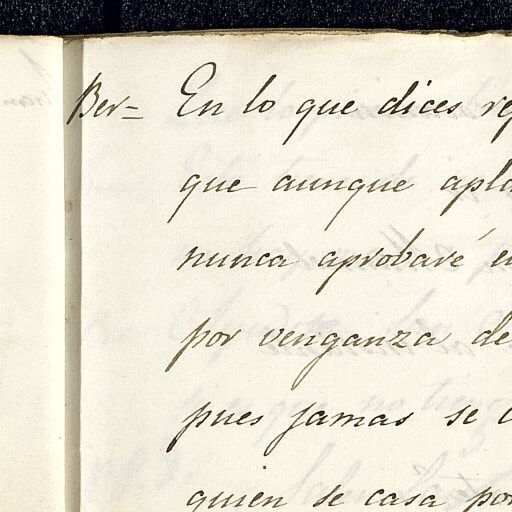 Ber= En lo que dices
que aunque
nunca aprobaré
por venganza de
pues jamas se
quien se casa por